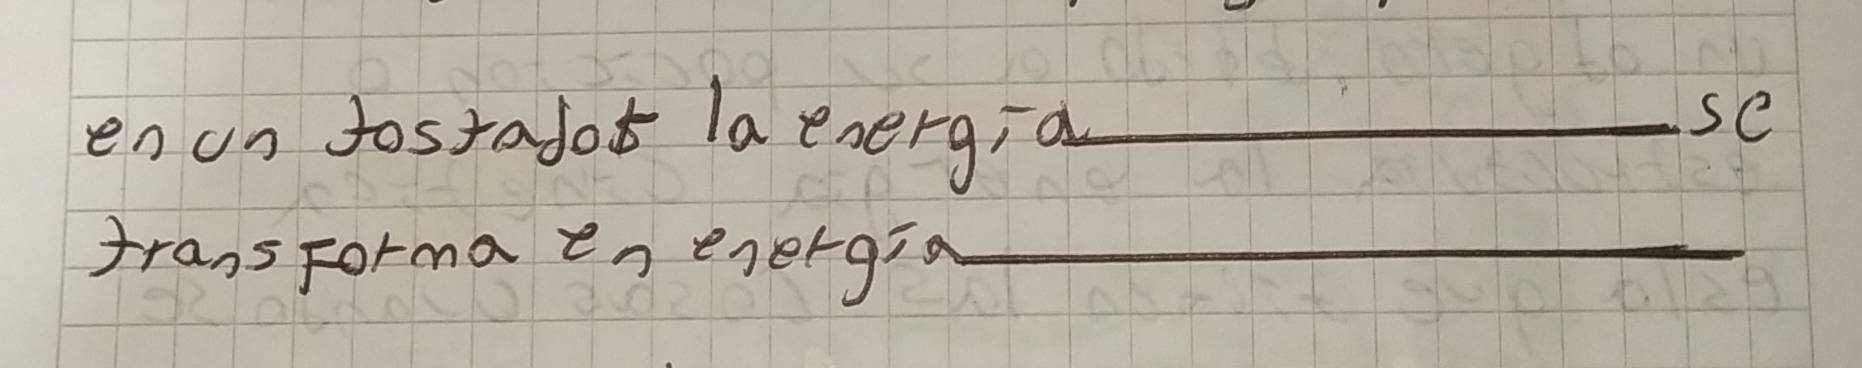 en un tostador la energía__________ se
transforma en energía__________